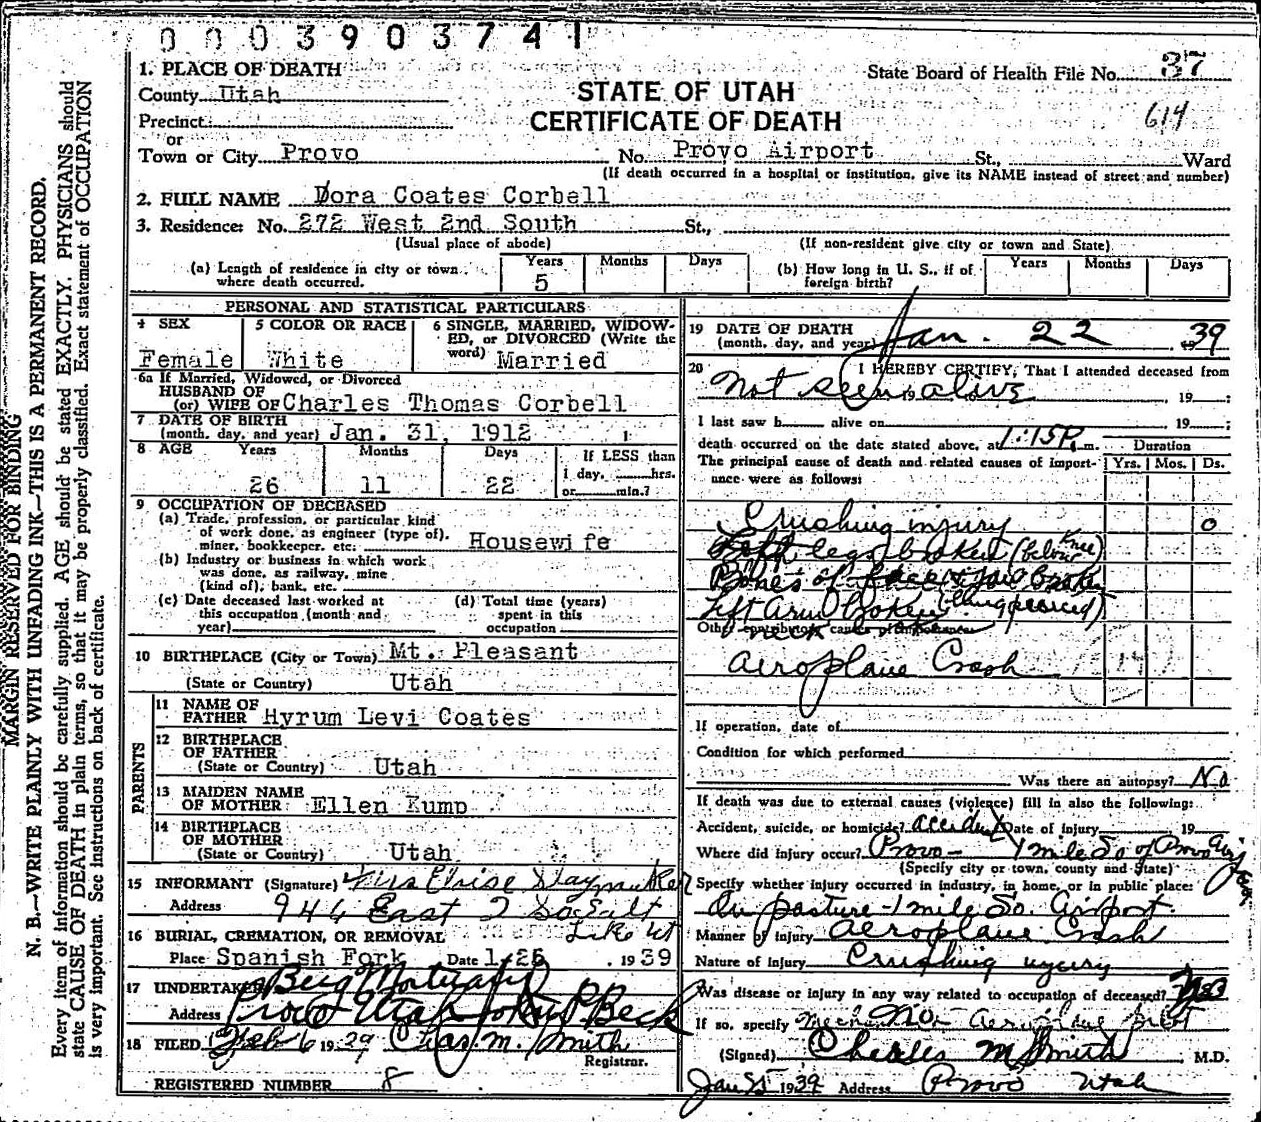 0003903741
1. PLACE OF DEATH
State Board of Health File No. 37
County Utah
STATE OF UTAH
614
Precinct
CERTIFICATE OF DEATH
or
Town or City Provo No. Provo Airport St., Ward
(If death occurred in a hospital or institution, give its NAME instead of street and number)
2. FULL NAME Dora Coates Corbell
3. Residence: No. 272 West 2nd South St.,
(Usual place of abode) (If non-resident give city or town and State)
(a) Length of residence in city or town where death occurred. Years 5 Months Days
(b) How long in U. S., if of foreign birth? Years Months Days
PERSONAL AND STATISTICAL PARTICULARS
4 SEX Female
5 COLOR OR RACE White
6 SINGLE, MARRIED, WIDOWED, or DIVORCED (Write the word) Married
6a If Married, Widowed, or Divorced
HUSBAND OF
(or) WIFE OF Charles Thomas Corbell
7 DATE OF BIRTH
(month, day, and year) Jan. 31, 1912
8 AGE Years 26 Months 11 Days 22 If LESS than 1 day, hrs. or min.?
9 OCCUPATION OF DECEASED
(a) Trade, profession, or particular kind of work done, as engineer (type of), miner, bookkeeper, etc. Housewife
(b) Industry or business in which work was done, as railway, mine (kind of), bank, etc.
(c) Date deceased last worked at this occupation (month and year)
(d) Total time (years) spent in this occupation
10 BIRTHPLACE (City or Town) Mt. Pleasant
(State or Country) Utah
PARENTS
11 NAME OF FATHER Hyrum Levi Coates
12 BIRTHPLACE OF FATHER
(State or Country) Utah
13 MAIDEN NAME OF MOTHER Ellen Kump
14 BIRTHPLACE OF MOTHER
(State or Country) Utah
15 INFORMANT (Signature) Mrs Elsise
Address 946 East 2 So Salt
Lake Ut
16 BURIAL, CREMATION, OR REMOVAL
Place Spanish Fork Date 1-26, 1939
17 UNDERTAKER Berg Mortuary
Address Provo Utah P. Beck
18 FILED Feb 6 1939 Chas. M. Smith
Registrar.
REGISTERED NUMBER 8
19 DATE OF DEATH
(month, day, and year) Jan. 22 1939
20 I HEREBY CERTIFY, That I attended deceased from
Not seen alive, 19 ;
I last saw h alive on 19 ;
death occurred on the date stated above, at 1:15 P. m.
The principal cause of death and related causes of importance were as follows:
Duration
Yrs. Mos. Ds.
Crushing injury 0
Both legs broken (below knee)
Bones of face & jaw broken
Left arm broken (lung pierced)
Other contributory causes of importance:
neck
Aeroplane Crash
If operation, date of
Condition for which performed
Was there an autopsy? No
If death was due to external causes (violence) fill in also the following:
Accident, suicide, or homicide? accident Date of injury 19
Where did injury occur? Provo - 1 mile So of Provo Airport
(Specify city or town, county and State)
Specify whether injury occurred in industry, in home, or in public place:
In pasture - 1 mile So. Airport.
Manner of injury Aeroplane Crash
Nature of injury Crushing injury
Was disease or injury in any way related to occupation of deceased? No
If so, specify No
(Signed) Charles M Smith M.D.
Jan 25 1939 Address Provo Utah
MARGIN RESERVED FOR BINDING
N. B.—WRITE PLAINLY WITH UNFADING INK—THIS IS A PERMANENT RECORD.
Every item of information should be carefully supplied. AGE should be stated EXACTLY. PHYSICIANS should
state CAUSE OF DEATH in plain terms, so that it may be properly classified. Exact statement of OCCUPATION
is very important. See instructions on back of certificate.